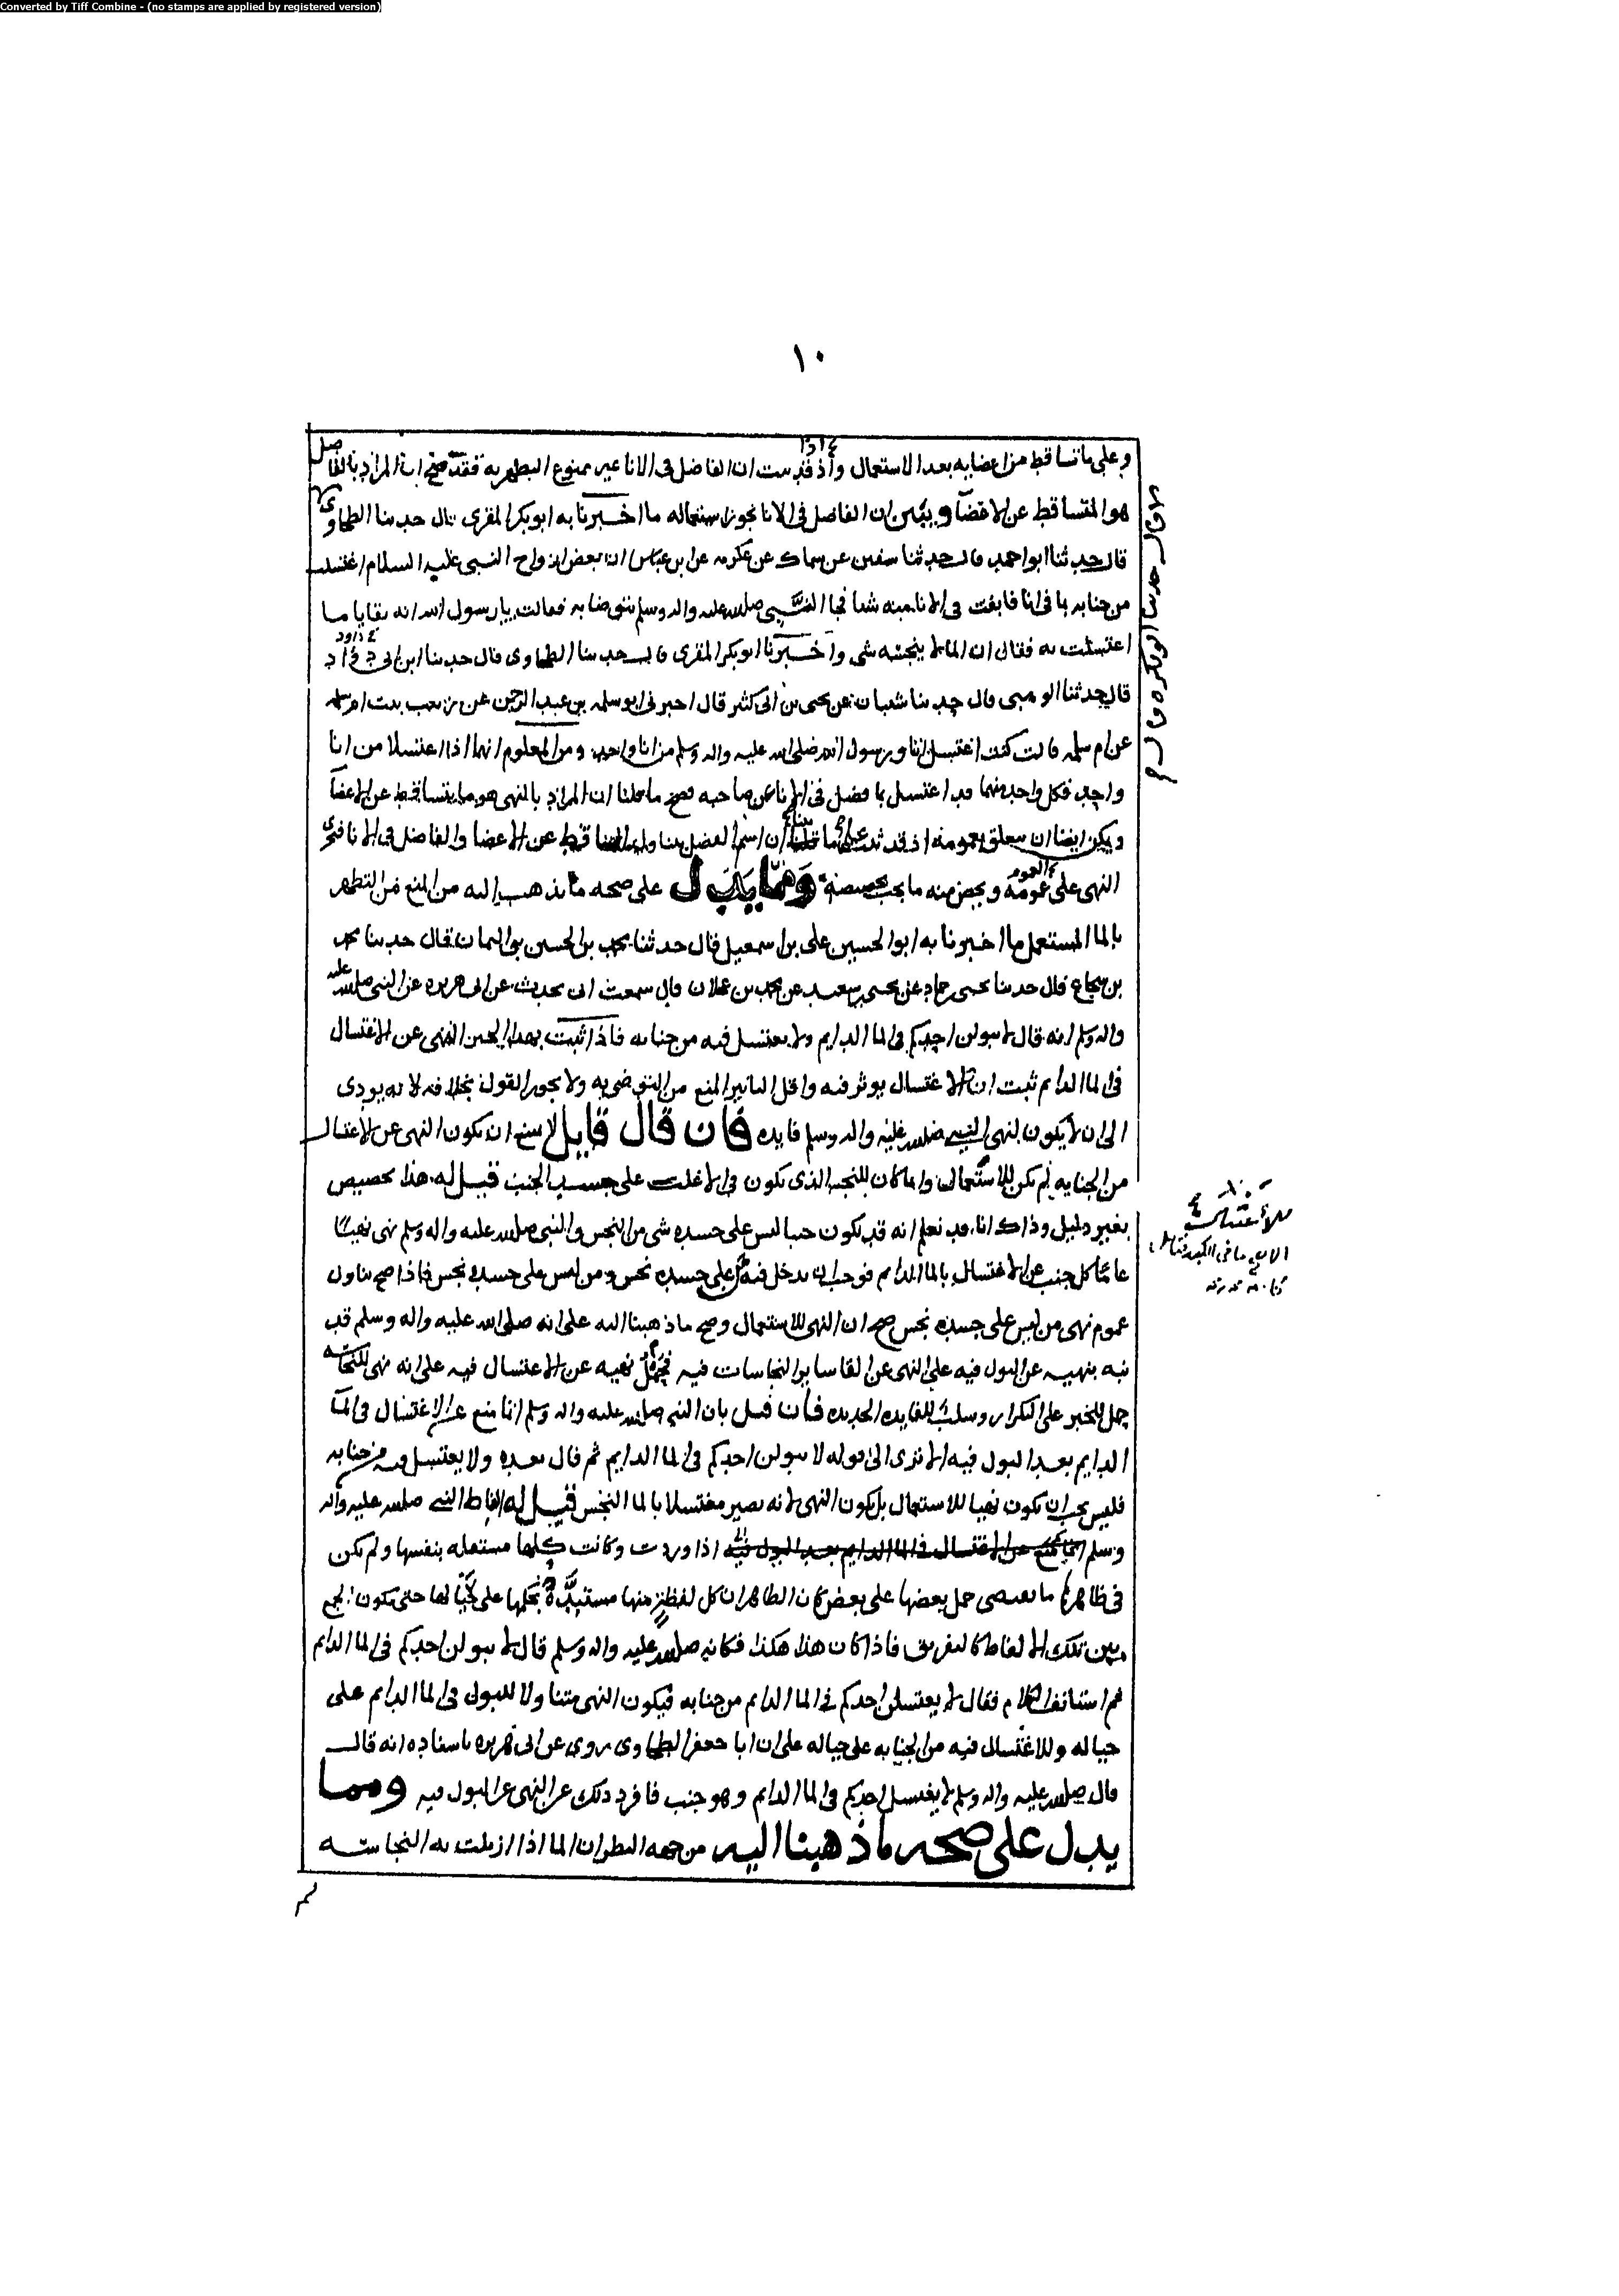 Converted by Tiff Combine - (no stamps are applied by registered version)
١٠
وعلى ما تساقط من اعضايه بعد الاستعمال واذ قد ثبت ان الفاضل في الانا غير ممنوع التطهر به فقد صح ان المراد بالفاضل
هو المتساقط عن الاعضآ ويبين ان الفاضل في الانا يجوز استعماله ما اخبرنا به ابو بكر المقري قال حدثنا الطحاوي
قال حدثنا ابو احمد قال حدثنا سفين عن سماك عن عكرمه عن ابن عباس ان بعض ازواج النبي عليه السلام اغتسلت
من جنابه بما في انا فابقت في الانا منه شيا فجا النبي صلى الله عليه واله وسلم يتوضا به فقالت يا رسول الله انه بقايا ما
اغتسلت به فقال ان الما لا ينجسه شي واخبرنا ابو بكر المقري قال حدثنا الطحاوي قال حدثنا ابن ابي داود
قال حدثنا ابو قال حدثنا شيبان عن يحيى بن ابي كثير قال اخبرني ابو سلمه بن عبد الرحمن عن زينب بنت ام سلمه
عن ام سلمه قالت كنت اغتسل انا ورسول الله صلى الله عليه واله وسلم من انا واحد ومن المعلوم انهما اذا اغتسلا من انا
واحد فكل واحد منهما قد اغتسل بما فضل في الانا عن صاحبه فصح ما قلنا ان المراد بالنهي هو ما يتساقط عن الاعضآ
ويمكن ايضا ان يتعلق بعمومه اذ قد ثبت ان اسم الفضل يتناول المتساقط عن الاعضا والفاضل في الانا فنجري
النهي على عمومه ويخص منه ما يجب تخصيصه ومما يدل على صحه ما نذهب اليه من المنع من التطهر
بالما المستعمل ما اخبرنا به ابو الحسين على بن اسمعيل قال حدثنا محمد بن الحسين بن اليمان قال حدثنا محمد
بن شجاع قال حدثنا يحيى بن سعيد عن محمد بن عجلان قال سمعت ابي يحدث عن ابي هريره عن النبي صلى الله عليه
واله وسلم انه قال لا يبولن احدكم في الما الدايم ولا يغتسل فيه من جنابه فاذا ثبت بهذا النهي عن الاغتسال
في الما الدايم ثبت ان الاغتسال يوثر فيه واقل التاثير المنع من التوضي به ولا يجوز القول بخلافه لانه يودي
الى ان لا يكون لنهي النبي صلى الله عليه واله وسلم فايده فان قال قايل لا يمنع ان يكون النهي عن الاغتسال
من الجنابه لم يكن للاستعمال وانما كان للنجس الذي يكون في الاغلب على جسد الجنب قيل له هذا تخصيص
بغير دليل وذاك انا قد نعلم انه قد يكون جنبا ليس على جسده شي من النجس والنبي صلى الله عليه واله وسلم نهى نهيا
عاما كل جنب عن الاغتسال بالما الدايم فوجب ان يدخل فيه من على جسده نجس ومن ليس على جسده نجس فاذا صح تناول
عموم نهي من ليس على جسده نجس صح ان النهي للاستعمال وصح ما ذهبنا اليه على انه صلى الله عليه واله وسلم قد
نبه بنهيه عن البول فيه على النهي عن القا ساير النجاسات فيه نهيه عن الاغتسال فيه على انه نهي للنجاسه
حمل للخبر على التكرار وسلب للفايده الجديده فان قيل بان النبي صلى الله عليه واله وسلم انما منع عن الاغتسال في المآ
الدايم بعد البول فيه الا ترى الى قوله لا يبولن احدكم في الما الدايم ثم قال بعده ولا يغتسل فيه من جنابه
فليس يجب ان يكون نهيا للاستعمال بل يكون النهي لانه يصير مغتسلا بالما النجس قيل له الفاظ النبي صلى الله عليه واله
وسلم اذا وردت وكانت كلها مستقله بنفسها ولم يكن
في ظاهرها ما يقتضي حمل بعضها على بعض كان الظاهر ان كل لفظه منها مستبده بحكمها على حتى يكون الجمع
بين تلك الالفاظ كالتفريق فاذا كان هذا هكذا فكانه صلى الله عليه واله وسلم قال لا يبولن احدكم في الما الدايم
ثم استانف الكلام فقال لا يغتسلن احدكم في الما الدايم من جنابه فيكون النهي متناولا للبول في الما الدايم على
حياله وللاغتسال فيه من الجنابه على حياله على ان ابا جعفر الطحاوي روى عن ابي هريره باسناده انه قال
قال صلى الله عليه واله وسلم لا يغتسل احدكم في الما الدايم وهو جنب فافرد ذلك عن النهي عن البول فيه ومما
يدل على صحه ما ذهبنا اليه من جهه النظر ان الما اذا ازيلت به النجاسه
قال حدثنا ابو بكره قال